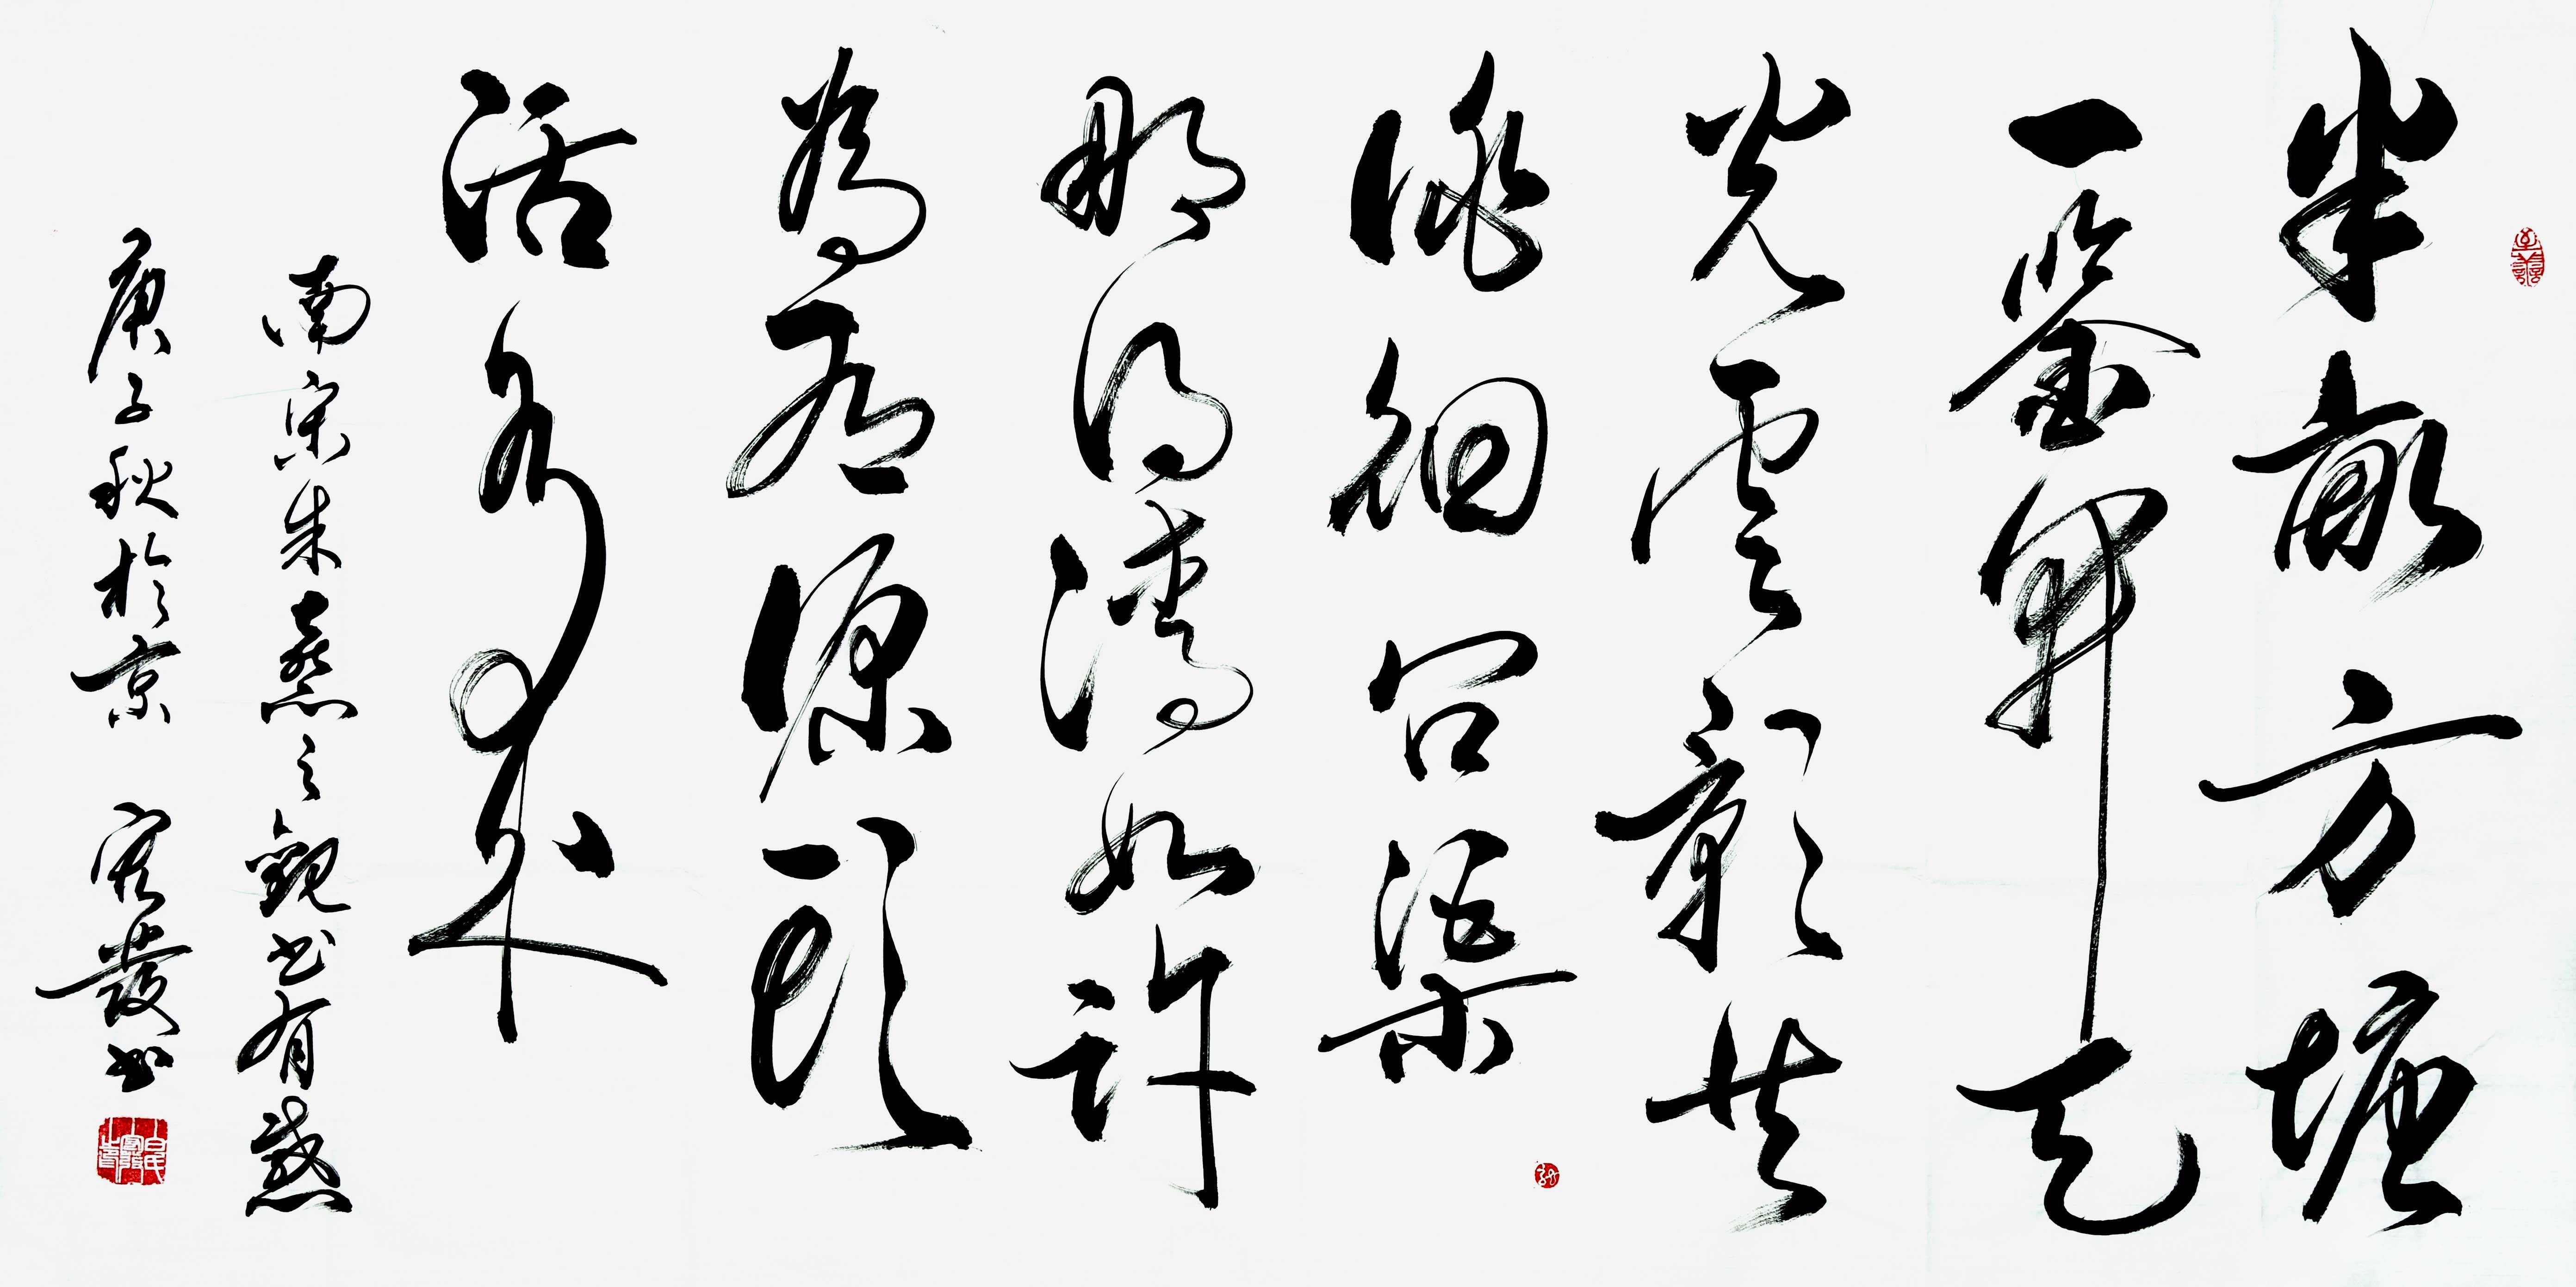 半畝方塘
一鉴開天
光雲影共
徘徊問渠
那得清如許
為有源頭
活水来
南宋朱熹之觀书有感
庚子秋於京 發书